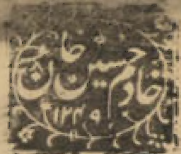 خادم حسین خان
۱۲۴۹